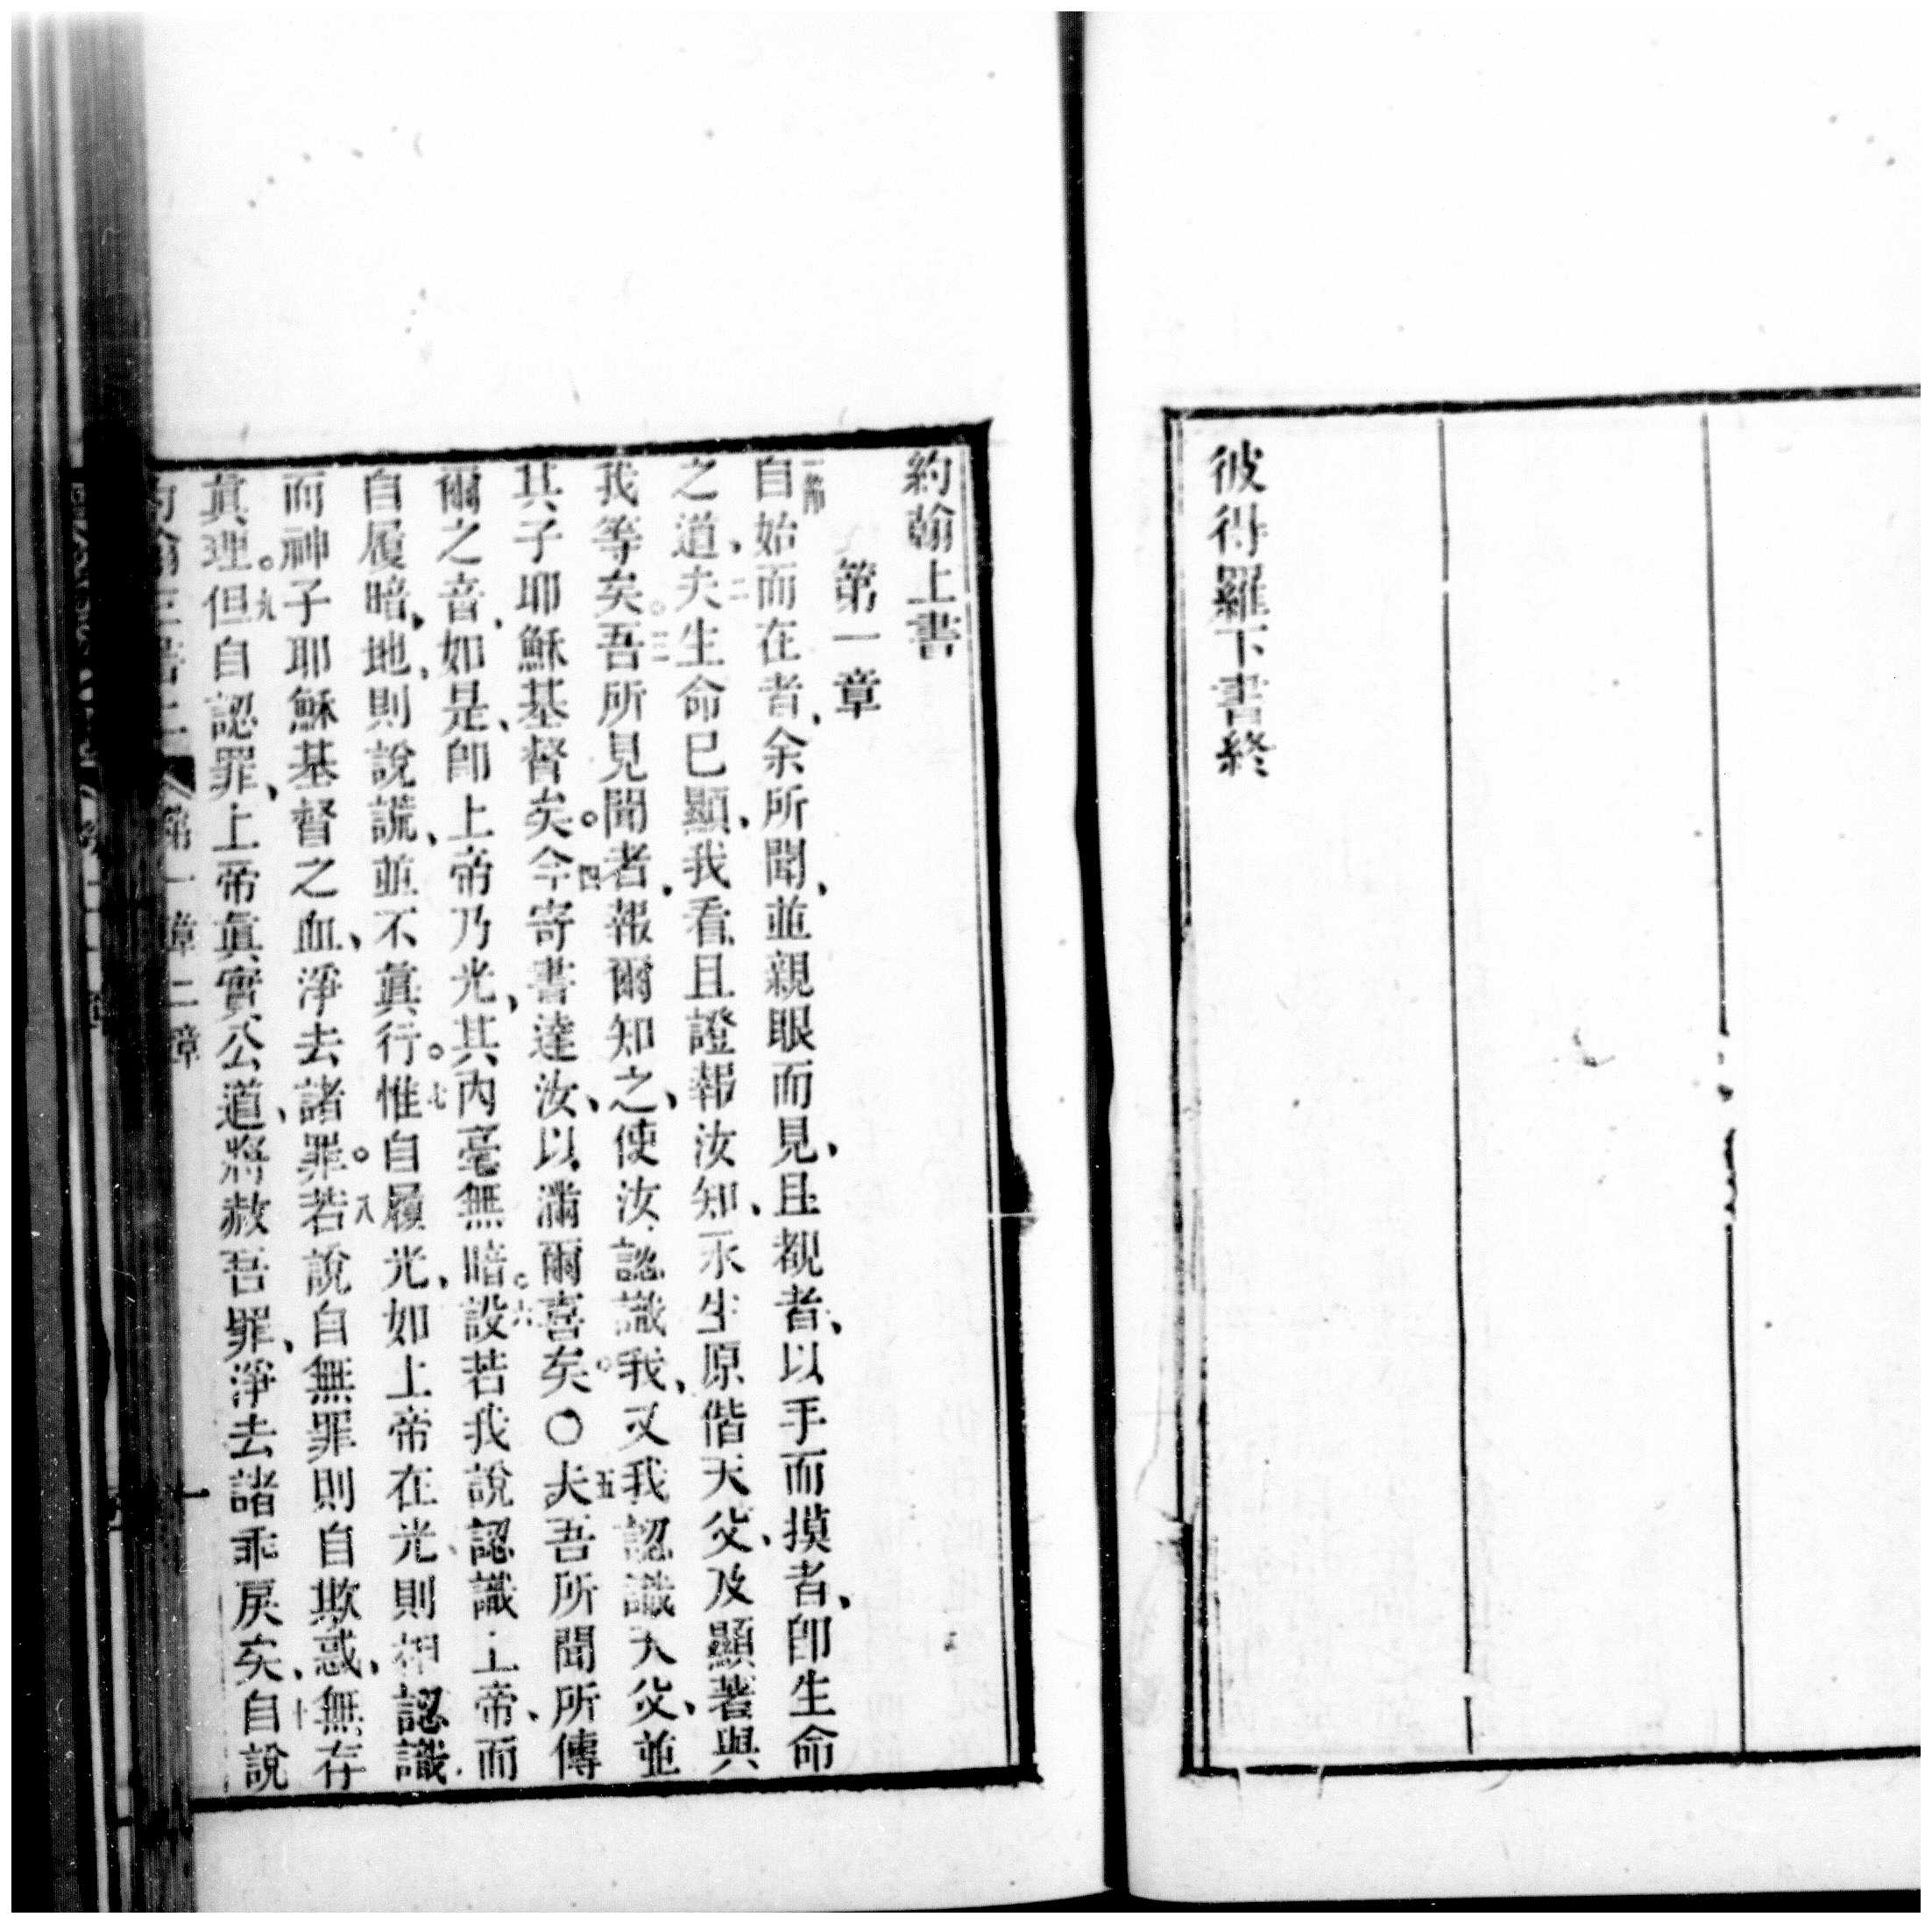 彼得羅下書終
約翰上書
第一章
一節自始而在者、余所聞、並親眼而見、且覩者、以手而摸者、卽生命
之道、二夫生命已顯、我看且證報汝知、永生原偕天父、及顯著與
我等矣。三吾所見聞者、報爾知之、使汝認識我、又我認識天父、並
其子耶穌基督矣。四今寄書達汝、以滿爾喜矣。〇五夫吾所聞所傳
爾之音、如是、卽上帝乃光、其內毫無暗。六設若我說認識上帝、而
自履暗、地、則說謊、並不眞行。七惟自履光、如上帝在光、則相認識
而神子耶穌基督之血、淨去諸罪。八若說自無罪則自欺惑、無存
眞理。九但自認罪、上帝眞實公道、將赦吾罪、淨去諸乖戾矣、十自說
約翰 書上 第一章二章 一